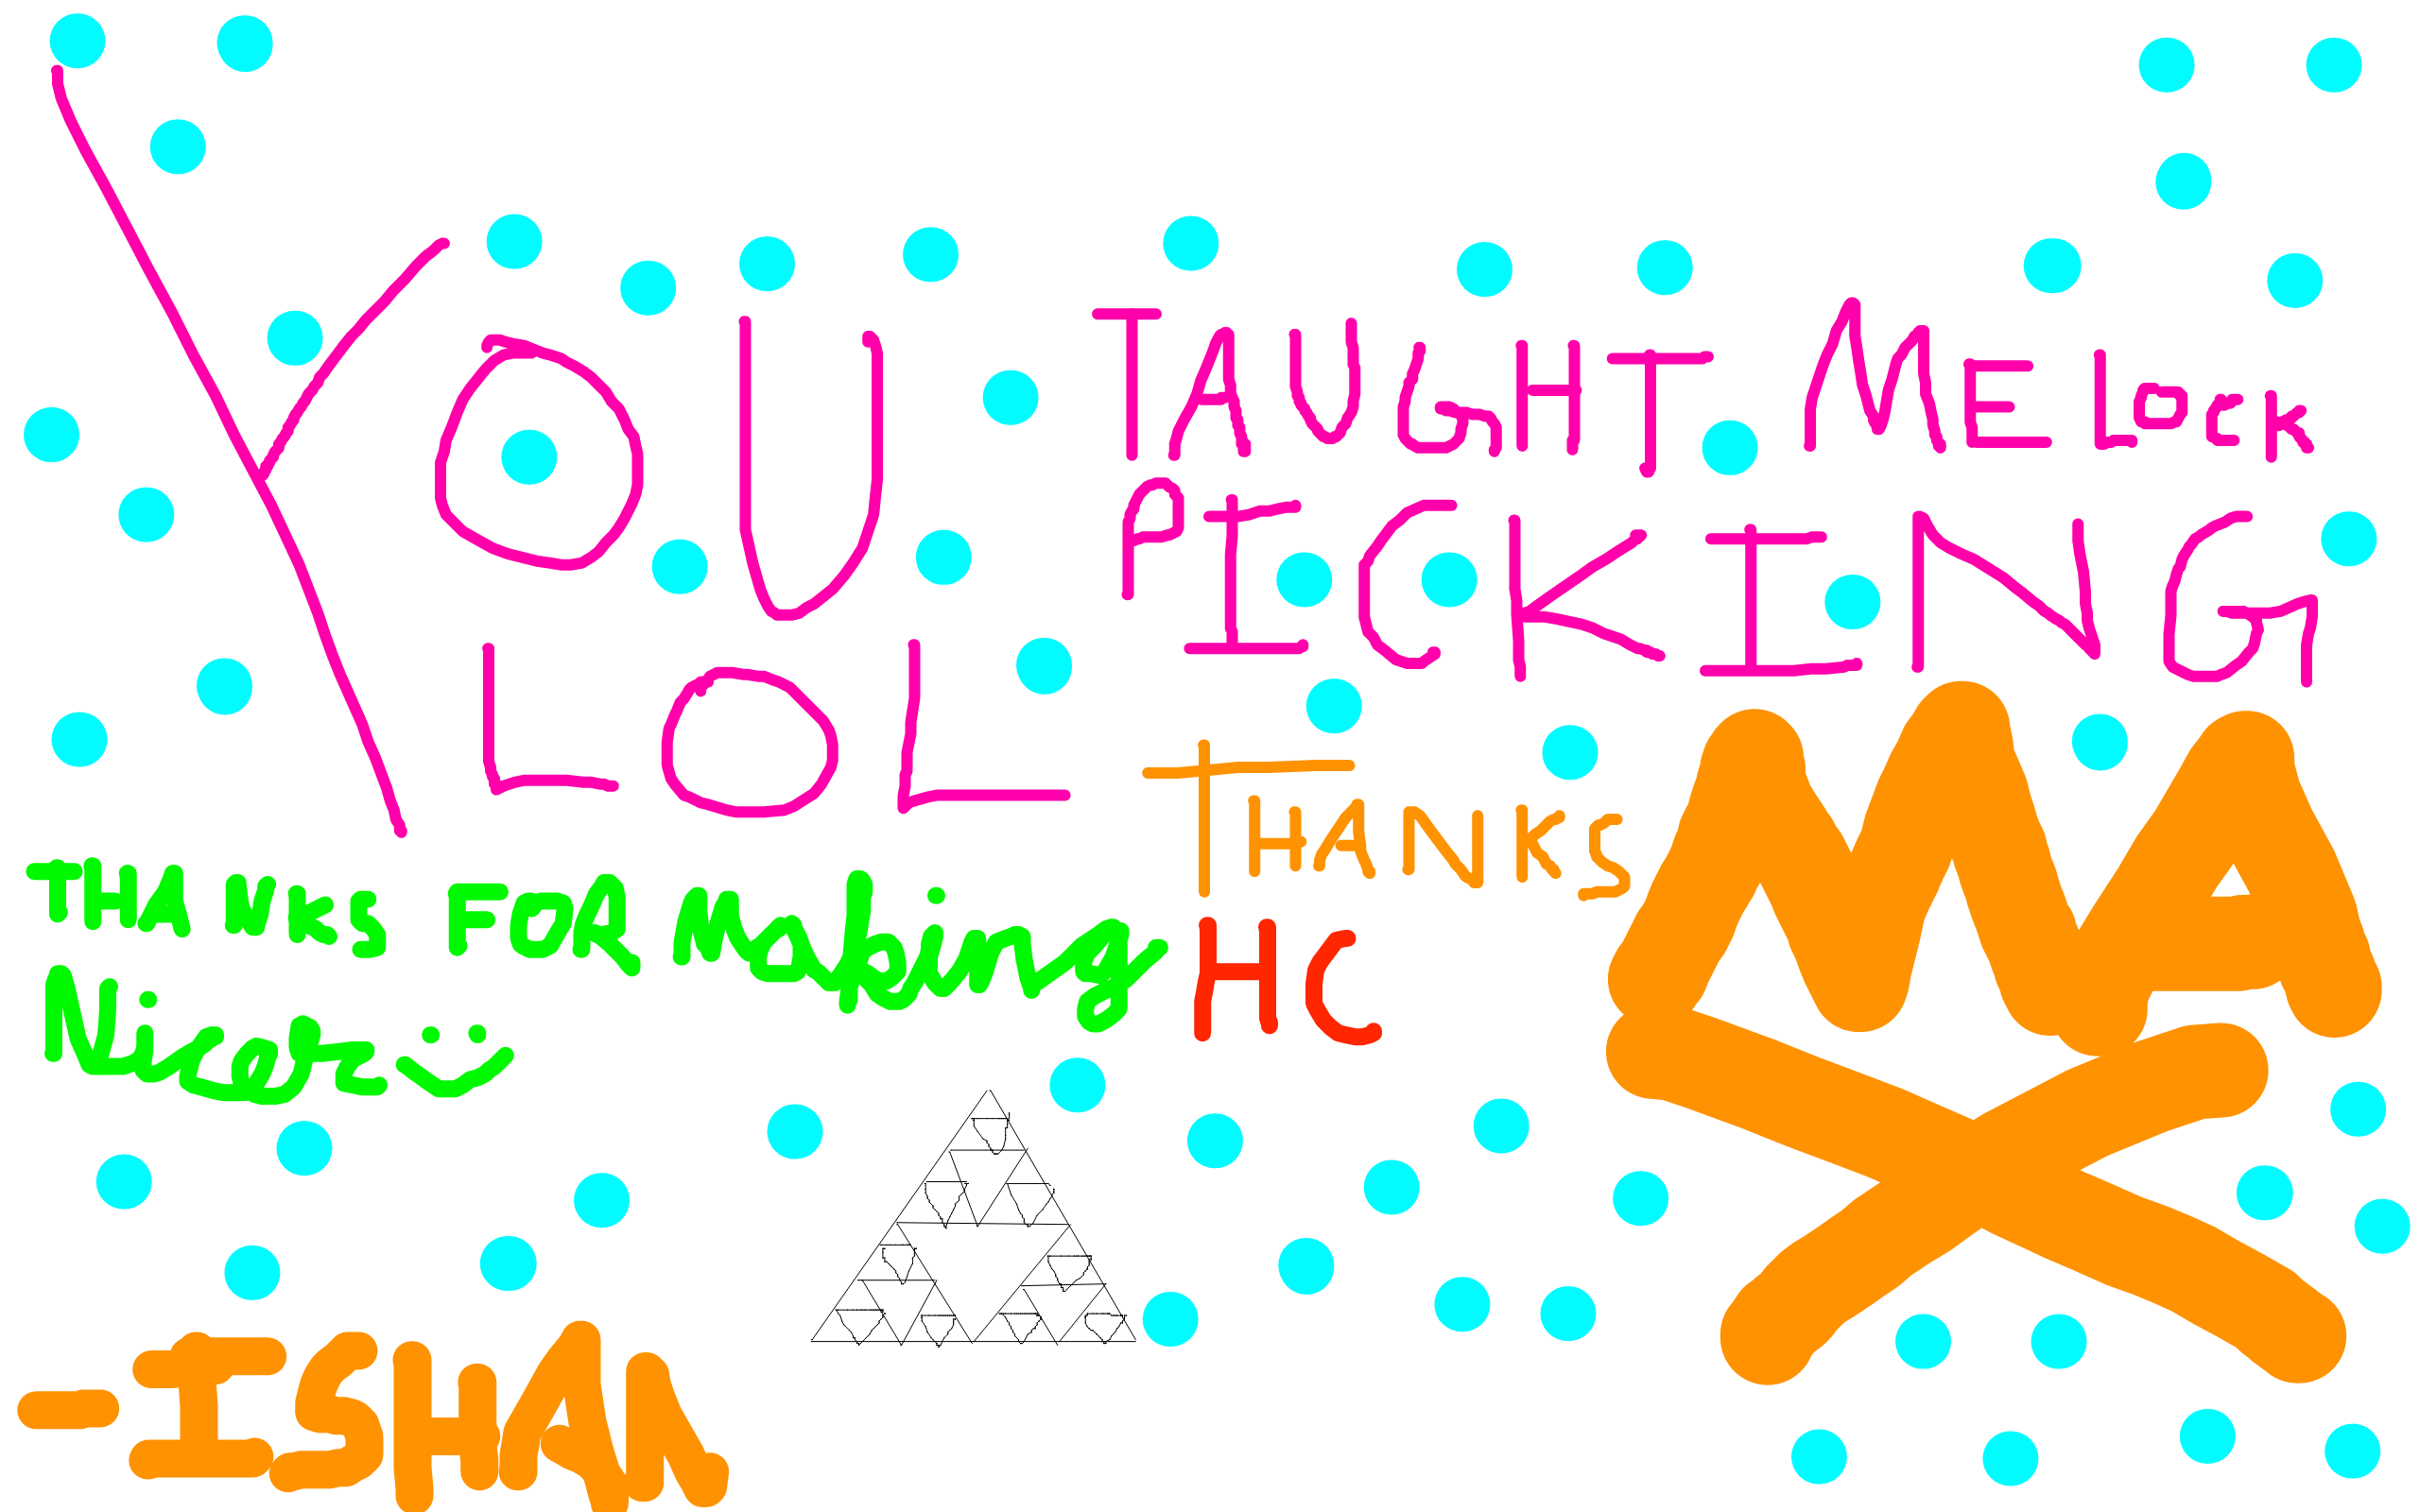 YOU TAUGHT ME LOCK
PICKING
LOL
THANKS
THANKS FOR Making
Nicole
HC
MA
-ISHAN